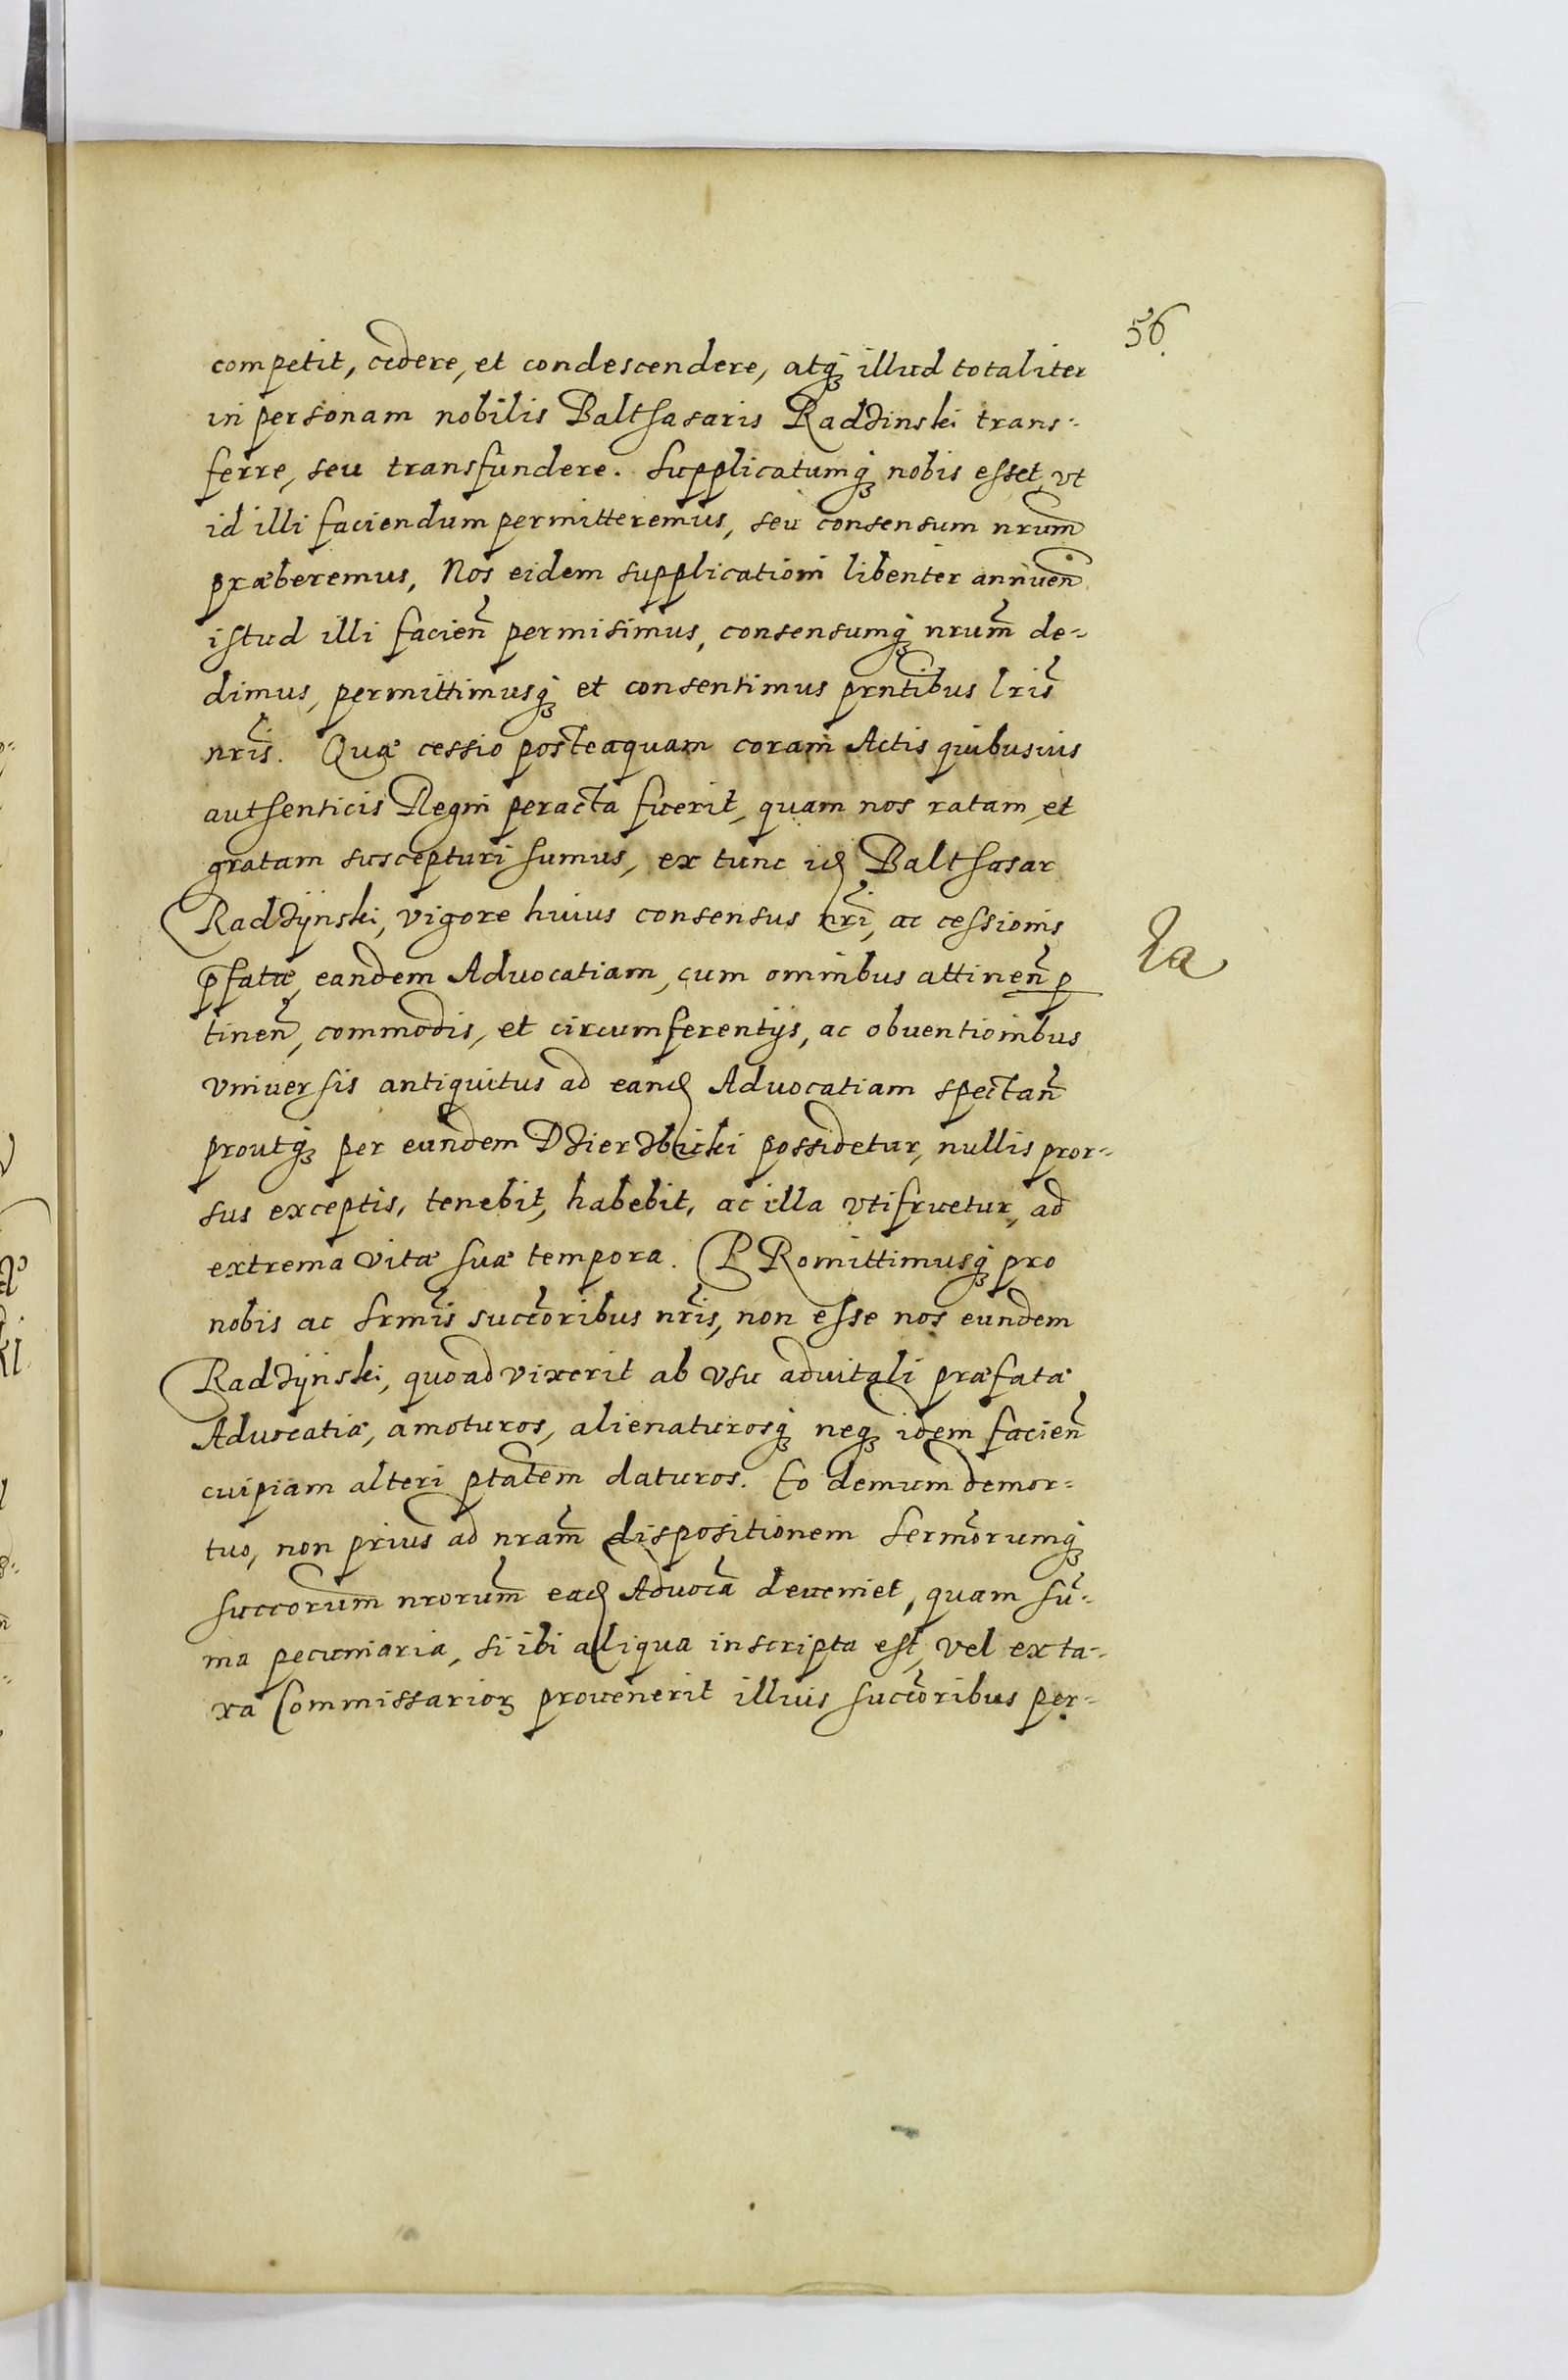 56.
competit, cedere, et condescendere, atqꜣ illud totaliter
in personam nobilis Balthasaris Radzinski trans-
ferre, seu transfundere. Supplicatumqꜣ nobis esset, vt
id illi faciendum permitteremus, seu consensum nrum̃
præberemus, Nos eidem supplicationi libenter annuen̄
istud illi facien̄ permisimus, consensumqꜣ nrum̃ de-
dimus, permittimusqꜣ et consentimus prntibus lris̃
nris̃. Quæ cessio posteaquam coram Actis quibusuis
authenticis Regni peracta fuerit, quam nos ratam, et
gratam suscepturi sumus, ex tunc id Balthasar
Radzÿnski, vigore huius consensus nrĩ, ac cessionis
p̄fatæ, eandem Aduocatiam, cum omnibus attinen̄ p
tinen̄, commodis, et circumferentijs, ac obuentionibus
vniuersis antiquitus ad eand Aduocatiam spectan̄
proutqꜣ per eundem Dzierzbicki possidetur, nullis pror-
sus exceptis, tenebit, habebit, ac illa vtifruetur, ad
extrema vitæ suæ tempora. PRomittimusqꜣ pro
nobis ac Srmis̃ succr̃oribus nris̃, non esse nos eundem
Radzÿnski, quoad vixerit ab vsu aduitali præfatæ
Aduocatiæ, amoturos, alienaturosqꜣ neqꜣ idem facien̄
cuipiam alteri ptatem̃ daturos. Eo demum demor-
tuo, non prius ad nram̃ dispositionem Sermõrumqꜣ
succorum̃ nrorum̃ ead Aduoca̅ deueniet, quam sum̃-
ma pecuniaria, si ibi aliqua inscripta est, vel ex ta-
xa Commissarioꝝ prouenerit illius succõribus per-